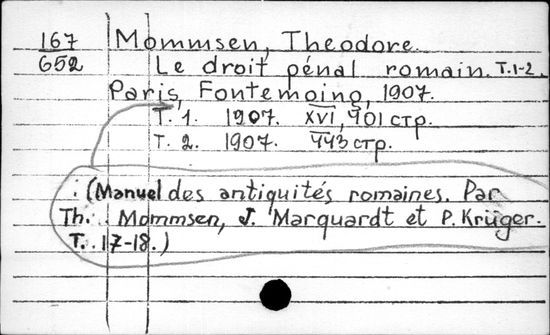 167
652
Mommsen, Theodore.
Le droit pénal romain. T.1-2.
Paris, Fontemoing, 1907.
T. 1. 1907. XVI, 901 стр.
T. 2. 1907. 443 стр.
(Manuel des antiquités romaines. Par
Th. Mommsen, J. Marquardt et P. Krüger.
T. 17-18.)